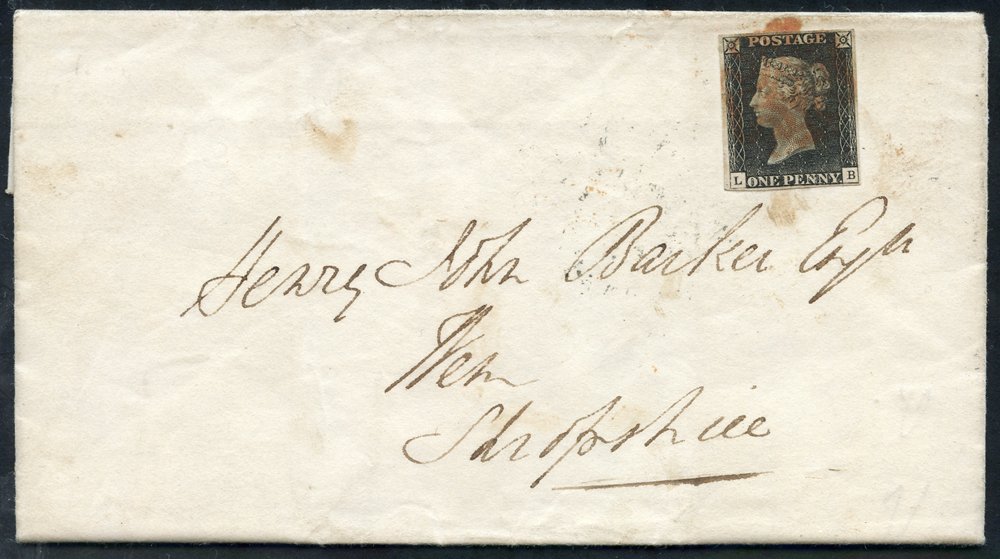 POSTAGE
L ONE PENNY B
Henry John Barker Esqr
Wem
Shropshire